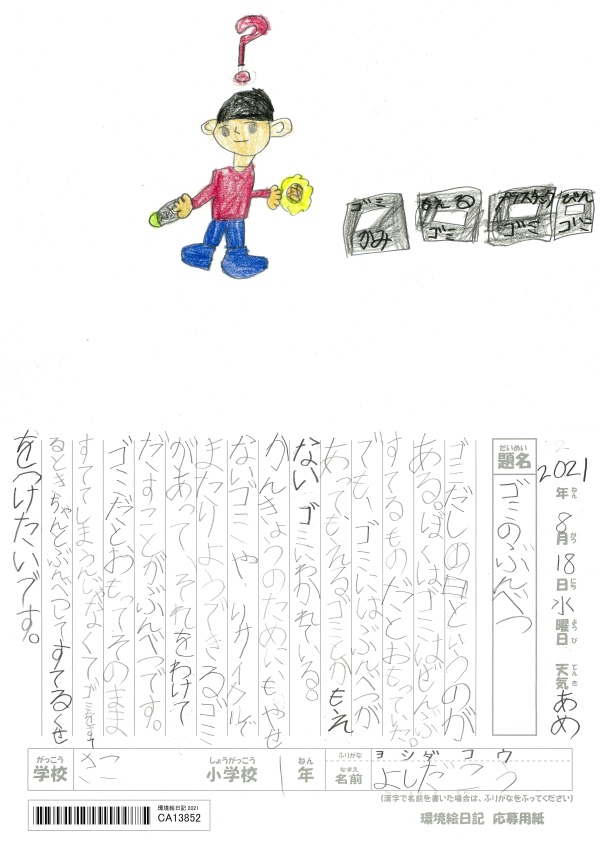 ?
ゴミ
かみ
もえる
ゴミ
プラスチック
ゴミ
びん
ゴミ
2021年ねん8月がつ18日にち水曜日ようび 天気てんき あめ
だいめい
題名
ゴミのぶんべつ
ゴミだしの日というのが
ある。ぼくはゴミはぜんぶ
すてるものだとおもっていた。
でも、ゴミにはぶんべつが
あって、もえるゴミとかもえ
ないゴミにわかれている。
かんきょうのためにもやせ
ないゴミやリサイクルで
またりようできるゴミ
があって、それをわけて
だすことがぶんべつです。
ゴミだとおもってそのまま
すててしまうんじゃなくて、ゴミをすて
るときちゃんとぶんべつしてすてるくせ
をつけたいです。
がっこう
学校
しょうがっこう
小学校
1
ねん
年
ふりがな
ヨシダ コウ
なまえ
名前
よしだこう
(漢字で名前を書いた場合は、ふりがなをふってください)
環境絵日記 2021
CA13852
環境絵日記 応募用紙